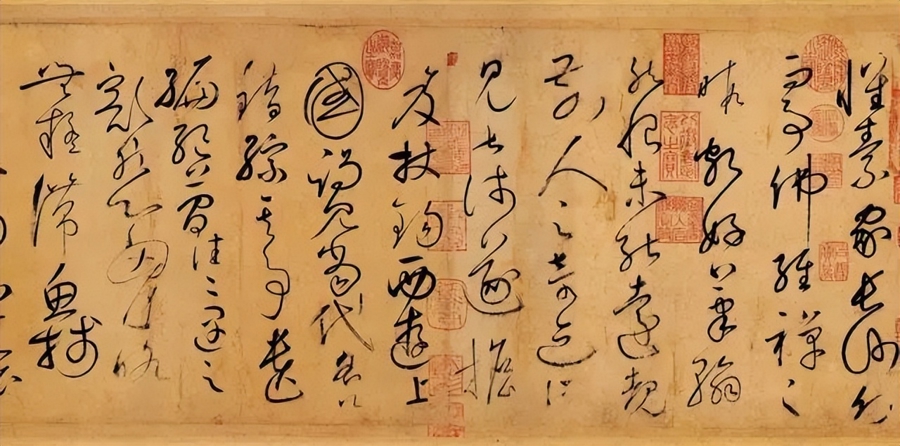 懷素家長沙幼
而事佛經禪之
暇頗好筆翰
然恨未能遠覩
前人之奇迹所
見甚淺遂擔
笈杖錫西遊上
國謁見當代名公
錯綜其事遺
編絕簡往々遇之
豁然心胸略
無疑滯魚牋